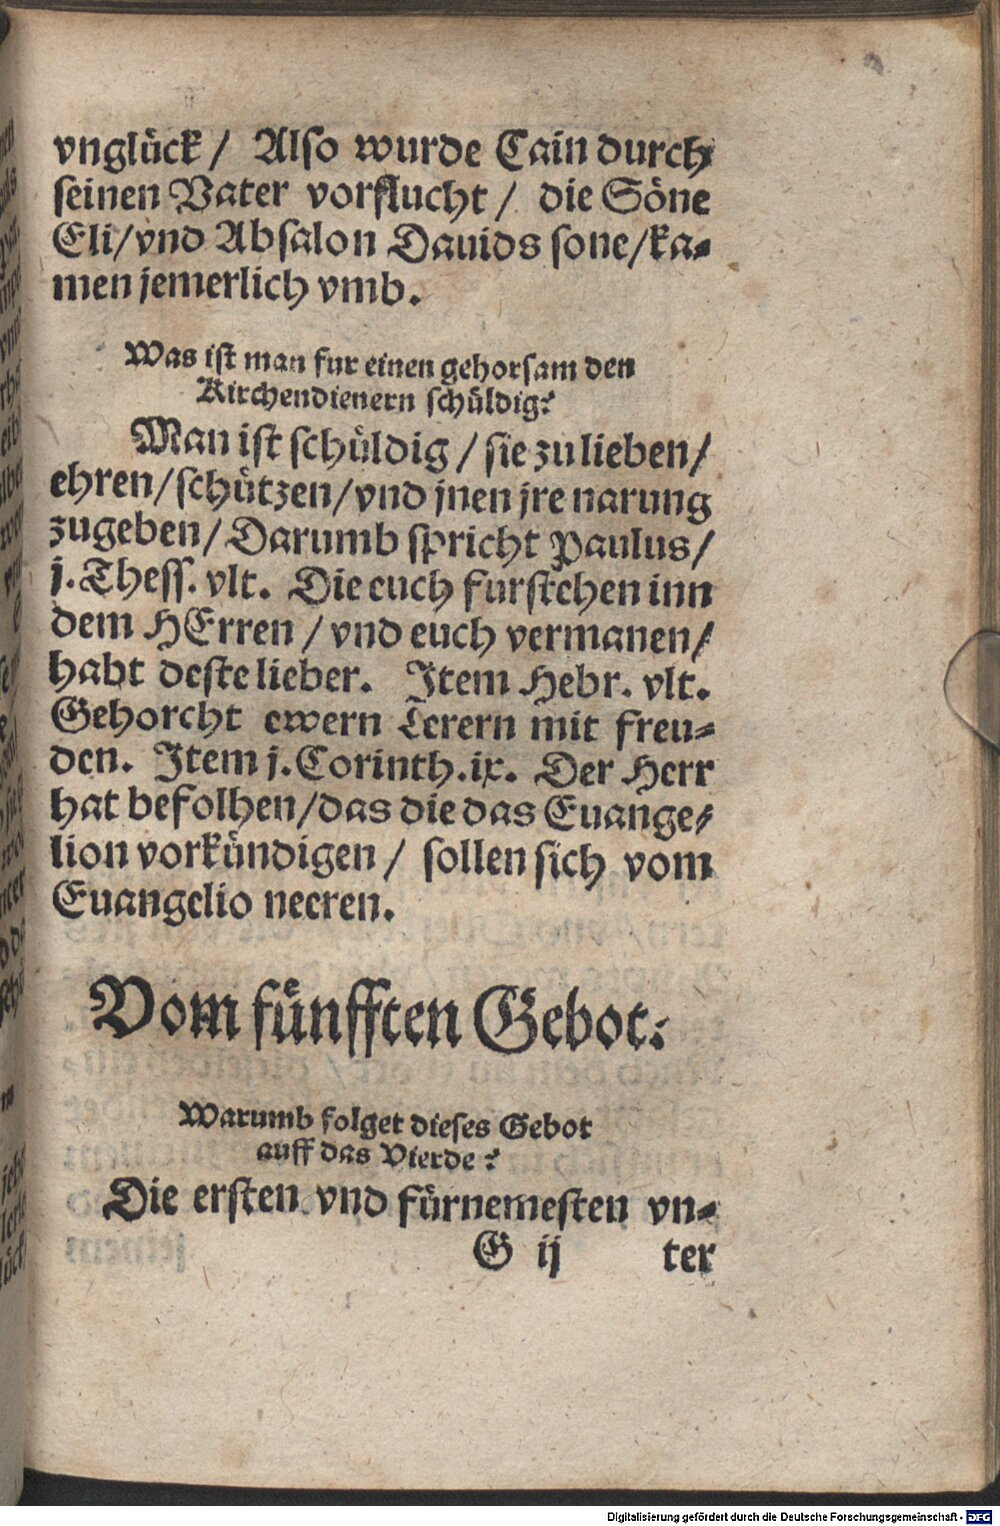 vnglück / Also wurde Cain durch
seinen Vater vorflucht / die Söne
Eli / vnd Absalon Dauids sone / ka-
men jemerlich vmb.
Was ist man fur einen gehorsam den
Kirchendienern schüldig?
Man ist schüldig / sie zu lieben /
ehren / schützen / vnd jnen jre narung
zugeben / Darumb spricht Paulus /
j. Thess. vlt. Die euch furstehen inn
dem HErren / vnd euch vermanen /
habt deste lieber. Item Hebr. vlt.
Gehorcht ewern Lerern mit freu-
den. Item j. Corinth. ix. Der Herr
hat befolhen / das die das Euange-
lion vorkündigen / sollen sich vom
Euangelio neeren.
Vom fünfften Gebot.
Warumb folget dieses Gebot
auff das Vierde?
Die ersten vnd fürnemesten vn-
G ij ter
Digitalisierung gefördert durch die Deutsche Forschungsgemeinschaft - DFG